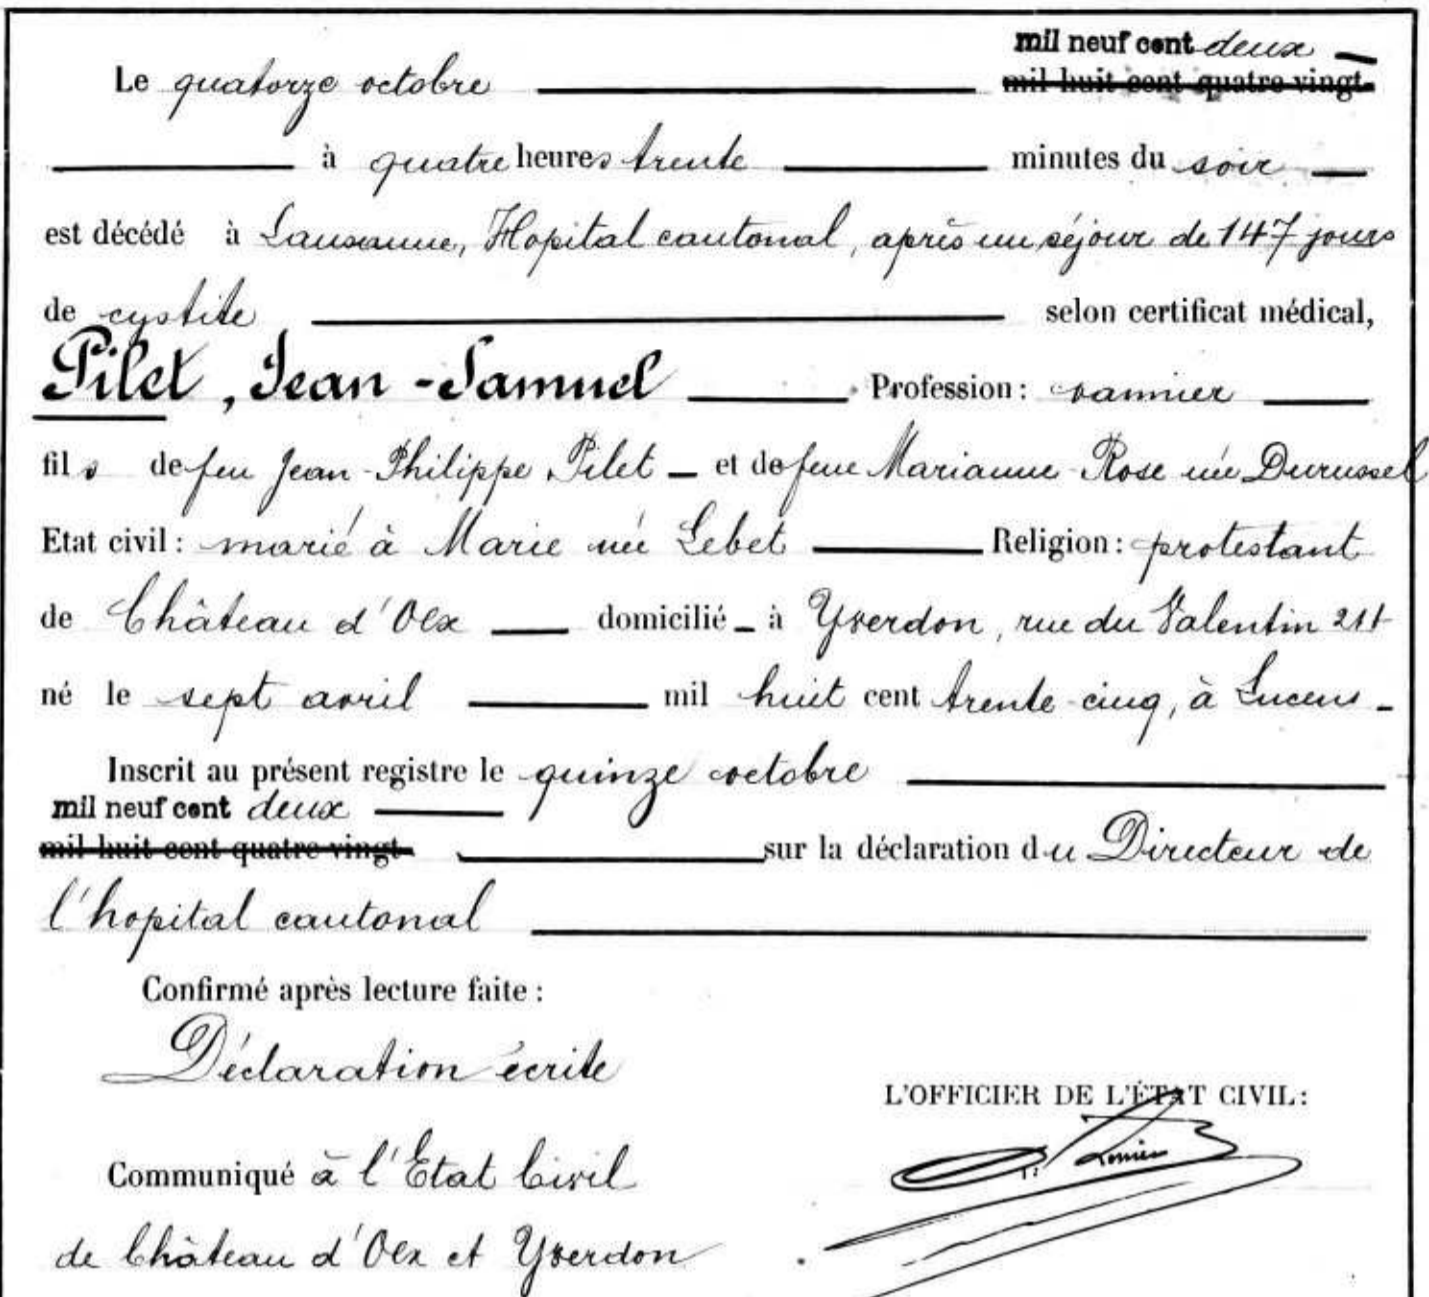 mil neuf cent deux
Le quatorze octobre mil huit cent quatre vingt
à quatre heures trente minutes du soir
est décédé à Lausanne, Hopital cantonal, après un séjour de 147 jours
de cystite selon certificat médical,
Pilet, Jean-Samuel Profession: vannier
fils de feu Jean-Philippe Pilet et de feue Marianne Rose née Durussel
Etat civil: marié à Marie née Lebet Religion: protestant
de Château d'Oex domicilié à Yverdon, rue du Valentin
né le sept avril mil huit cent trente cinq, à Lucens
Inscrit au présent registre le quinze octobre
mil neuf cent deux
mil huit cent quatre vingt sur la déclaration du Directeur de
l'hopital cantonal
Confirmé après lecture faite:
Déclaration écrite
L'OFFICIER DE L'ÉTAT CIVIL:
Communiqué à l'Etat Civil
de Château d'Oex et Yverdon